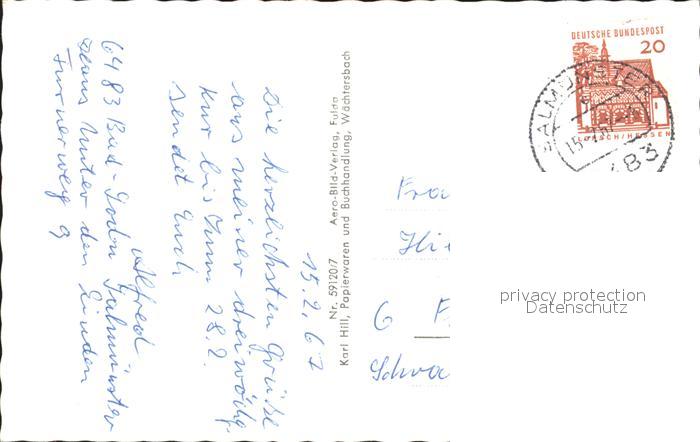 15.2.67
Die herzlichsten Grüße
aus meiner dreiwöchg.
Kur bis zum 28.2.
sendet Euch
Alfred
6483 Bad-Soden Salmünster
Haus Unter den Linden
Turnerweg 9
Nr. 59120/7 Aero-Bild-Verlag, Fulda
Karl Hill, Papierwaren und Buchhandlung, Wächtersbach
DEUTSCHE BUNDESPOST
20
LORSCH/HESSEN
SALMÜNSTER
Fra
Hi
6 F
Schwa
privacy protection
Datenschutz